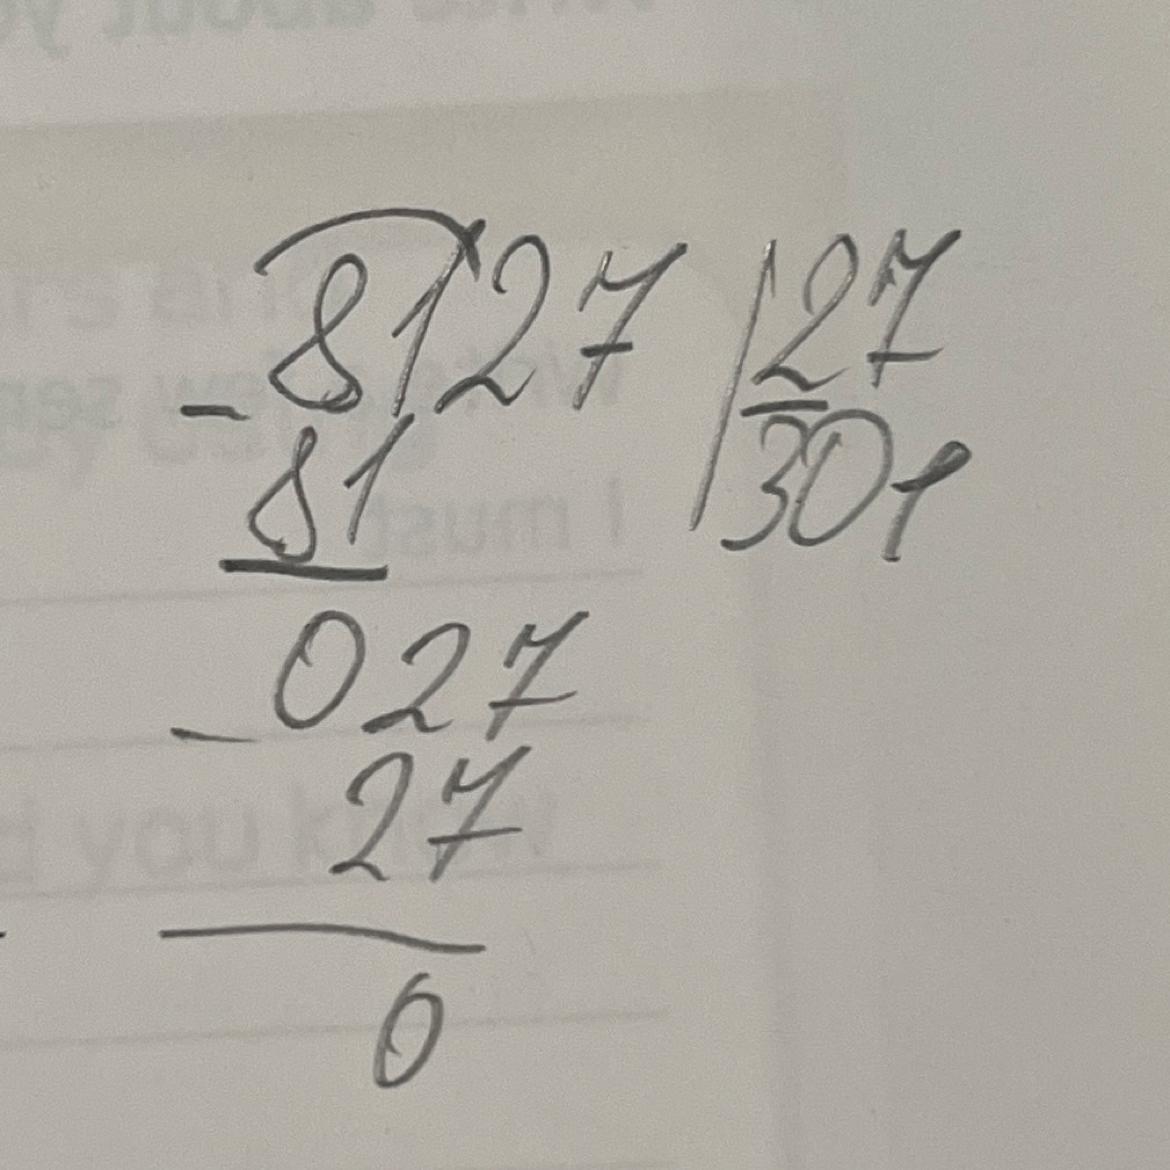 8127 | 27
- 81 301
027
- 27
0